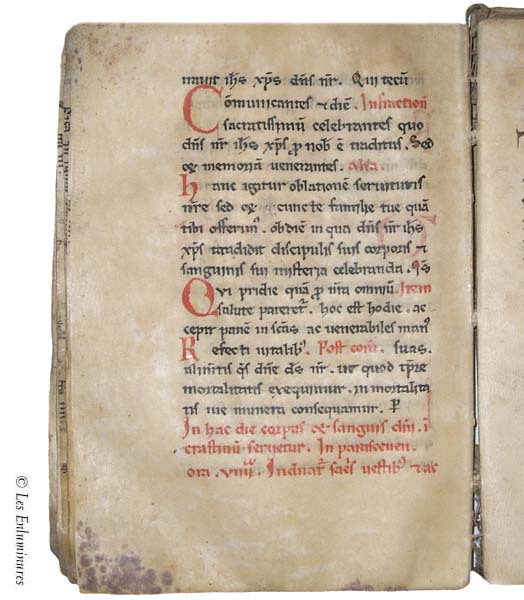 trauit ihs xps dns nr. Qui tecu
Comunicantes & die. Infraction
sacratissimu celebrantes quo
dns nr ihs xps p nob e traditus. Sed
& memoria venerantes. Alia.
hanc agitur oblatione seruitutis
nre sed & cuncte familie tue qua
tibi offerim. ob die in qua dns nr ihs
xps tradidit discipulis suis corporis &
sanguinis sui misteria celebranda. Qs
Qui pridie qua p nra omniu Item
salute pateret. hoc est hodie. ac
cepit pane in scas ac venerabiles man
Refecti uitalib. Post com. suas.
alimtis qs dne ds nr. ut quod tpre
mortalitatis exequimur. in mortalita
tis tue munera consequamur. P
In hac die corpus & sanguis dni. i
crastinu seruetur. In parasceuen.
ora. viiii. Induat sacs vestib & ac
© Les Enluminures